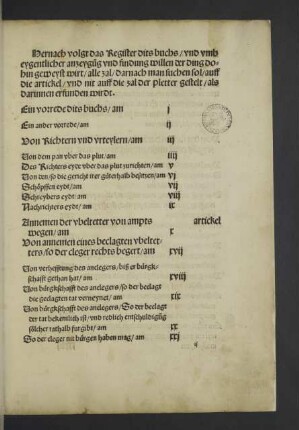 Hernach volgt das Register dits buchs / vnd vmb
eygentlicher anzeygũg vnd findung willen der ding do-
hin geweyst wirt / alle zal / darnach man suchen sol / auff
die artickel / vnd nit auff die zal der pletter gestelt / als
darinnen erfunden wirdt.
Ein vorrede dits buchs / am j
Ein ander vorrede / am ij
Von Richtern vnd vrteylern / am iij
Von dem pan vber das plut / am iiij
Des Richters eyde vber das plut zurichten / am v
Von den / so die gericht irer güterhalb besitzen / am vj
Schöpffen eydt / am vij
Schreybers eydt / am viij
Nachrichters eydt / am ix
Annemen der vbeltetter von ampts artickel
wegen / am x
Von annemen eines beclagten vbeltet-
ters / so der cleger rechts begert / am xvij
Von verhefftung des anclegers / biß er bürgk-
schafft gethan hat / am xviij
Von bürgkschafft des anclegers / so der beclagt
die geclagten tat verneynet / am xix
Von bürgkschafft des anclegers / So der beclagt
der tat bekentlich ist / vnd redlich entschuldigũg
sölcher tathalb furgibt / am xx
So der cleger nit bürgen haben mag / am xxj